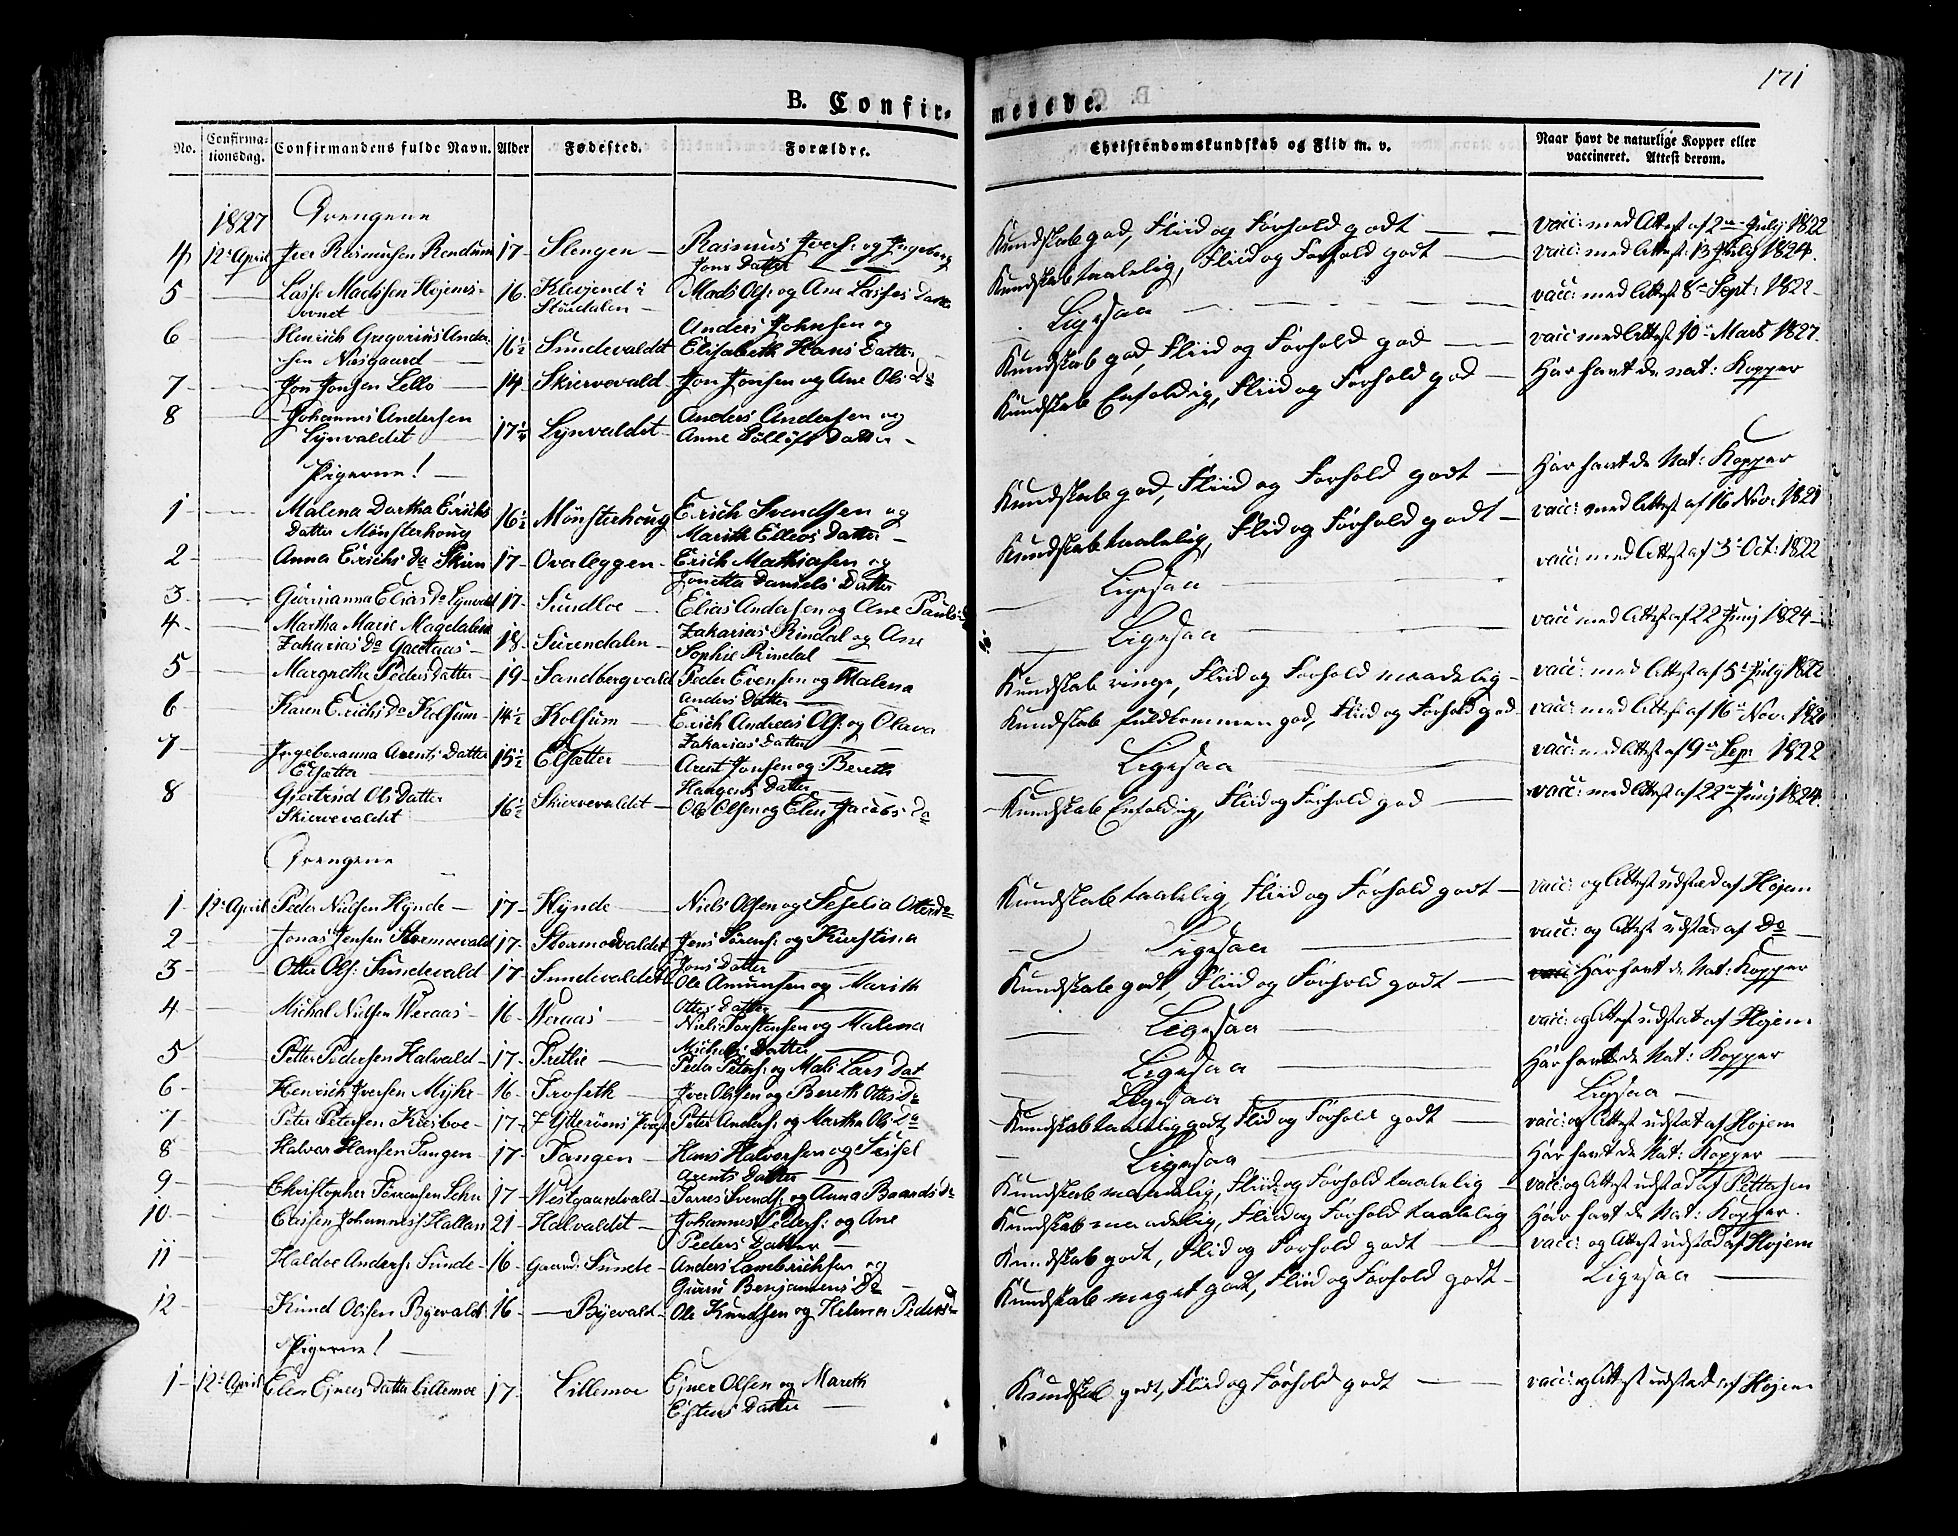 171
B. Confir-
merede.
No.
Confirma-
tionsdag.
Confirmandens fulde Navn.
Alder
Fødested.
Forældre.
Christendomskundskab og Flid m. v.
Naar havt de naturlige Kopper eller
vaccineret. Attest derom.
1827 Drengene
4 12te April Iver Rasmusen Rendum 17 Slengen Rasmus Ivers: og Ingeborg
Jons Datter
Kundskab god, Fliid og Forhold godt vacc: med Attest af 2den July 1822
5 Lasse Madsen Hojems- 16 Klevjend i Mads Ols: og Ane Lasses Datt
ovnet Stordalen
Kundskab taalelig, Fliid og Forhold godt vacc: med Attest: 13 July 1824.
6 Henrich Gregorius Ander 16½ Sundevaldet Anders Johnsen og
sen Nusgaard Elisabeth Hans Datter
Ligesaa vacc: med Attest 8de Sept: 1822
7 Jon Jonsen Lello 14 Skiervevald Jon Jonsen og Ane Ols Dr
Kundskab god, Fliid og Forhold god vacc: med Attest 10de Mars 1827.
8 Johannes Andersen 17½ Lynvaldet Anders Andersen og
Lynvaldet Anne Tolløfs Datter
Kundskab Enfoldig, Fliid og Forhold god Har havt de nat: Kopper
Pigerne!
1 Malena Dortha Erichs 16½ Mønsterhoug Erich Svendsen og
Datter Mønsterhoug Marith Ellevs Datter
Kundskab god, Fliid og Forhold godt Har havt de Nat: Kopper
2 Anna Erichs Da Skien 17 Overleggen Erich Mathiasen og
Jonetta Daniels Datter
Kundskab taalelig, Fliid og Forhold godt vacc: med Attest af 16 Nov: 1821
3 Gurrianna Elias Dr Lynvald 17 Sundloe Elias Andersen og Ane Pauls D
Ligesaa vacc: med Attest af 3de Oct: 1822
4 Martha Marie Magdalena 18 Surendalen Zakarias Rindal og Ane
Zakarias Da Gaaslaas Sophie Rindal
Ligesaa vacc: med Attest af 22 Junj 1824
5 Margrethe Peders Datter 19 Sandbergvald Peder Evensen og Malena
Anders Datter
Kundskab ringe, Fliid og Forhold maadelig vacc: med Attest af 5te July 1822
6 Karen Erichs Da Kolsum 14½ Kolsum Erich Andreas Ols: og Olava
Zakarias Datter
Kundskab fuldkommen god, Fliid og Forhold god vacc: med Attest af 16de Nov: 1821
7 Ingeboranna Arents Datter 15½ Elsætter Arent Jonsen og Bereth
Elsætter Haagens Datter
Ligesaa vacc: med Attest af 9de Sep: 1822
8 Giertrud Ols Datter 16½ Skiervevaldet Ole Olsen og Elen Jacobs Da
Skiervevaldet
Kundskab Enfoldig, Fliid og Forhold god vacc: med Attest af 22de Junj 1824.
Drengene
1 12te April Peder Nielsen Hynde 17 Hynde Niels Olsen og Seselia Otters Dr
Kundskab taalelig, Fliid og Forhold godt vacc: og Attest udsted af Hojem
2 Jonas Jensen Stormoevald 17 Stormoevaldet Jens Sørens: og Kierstina
Jons Datter
Ligesaa vacc: og Attest udsted af Do
3 Otter Ols: Sundevald 17 Sundevaldet Ole Amunsen og Marith
Otters Datter
Kundskab godt, Fliid og Forhold godt Har havt de Nat: Kopper
4 Michal Nielsen Weraas 16 Weraas Niels Torstensen og Malena
Michels Datter
Ligesaa vacc: og Attest udstæt af Hojem
5 Petter Pedersen Halvald 17 Tretlie Peder Peters: og Mali Lars Dat
Ligesaa Har havt de Nat: Kopper
6 Henrich Iversen Myhr 16 Froseth Iver Olsen og Bereth Otters Da
Ligesaa Ligesaa
7 Peter Petersen Kiesboe 17 Ytterøens Præst Peter Anders: og Martha Ols Da
Kundskab taalelig godt, Fliid og Forhold godt vacc: og Attest udstæt af Hojem
8 Halvor Hansen Tangen 17 Tangen Hans Halvorsen og Sissel
Arents Datter
Ligesaa Har havt de Nat: Kopper
9 Christopher Torresen Lehn 17 Westgaardvald Torres Svends: og Anna Baards Dr
Kundskab maadelig, Fliid og Forhold taalelig vacc: og Attest udsted af Pettersen
10 Casper Johannes: Hallan 21 Halvaldet Johannes Peders: og Ane
Peders Datter
Kundskab maadelig, Fliid og Forhold taalelig Har havt de Nat: Kopper.
11 Haldoe Anders: Sunde 16 Gaard: Sunde Anders Lambrichsen og
Gurru Benjamens Dr
Kundskab godt, Fliid og Forhold godt vacc: og Attest udsted af Hojem
12 Knud Olsen Byevald 16 Byevald Ole Knudsen og Helena Peders Dr
Kundskab meget godt, Fliid og Forhold godt Ligesaa
Pigerne!
1 12te April Elen Ejners Datter Lillemoe 17 Lillemoe Ejner Olsen og Mareth
Estens Datter
Kundskab godt, Fliid og Forhold godt vacc: og Attest udsted af Hojem